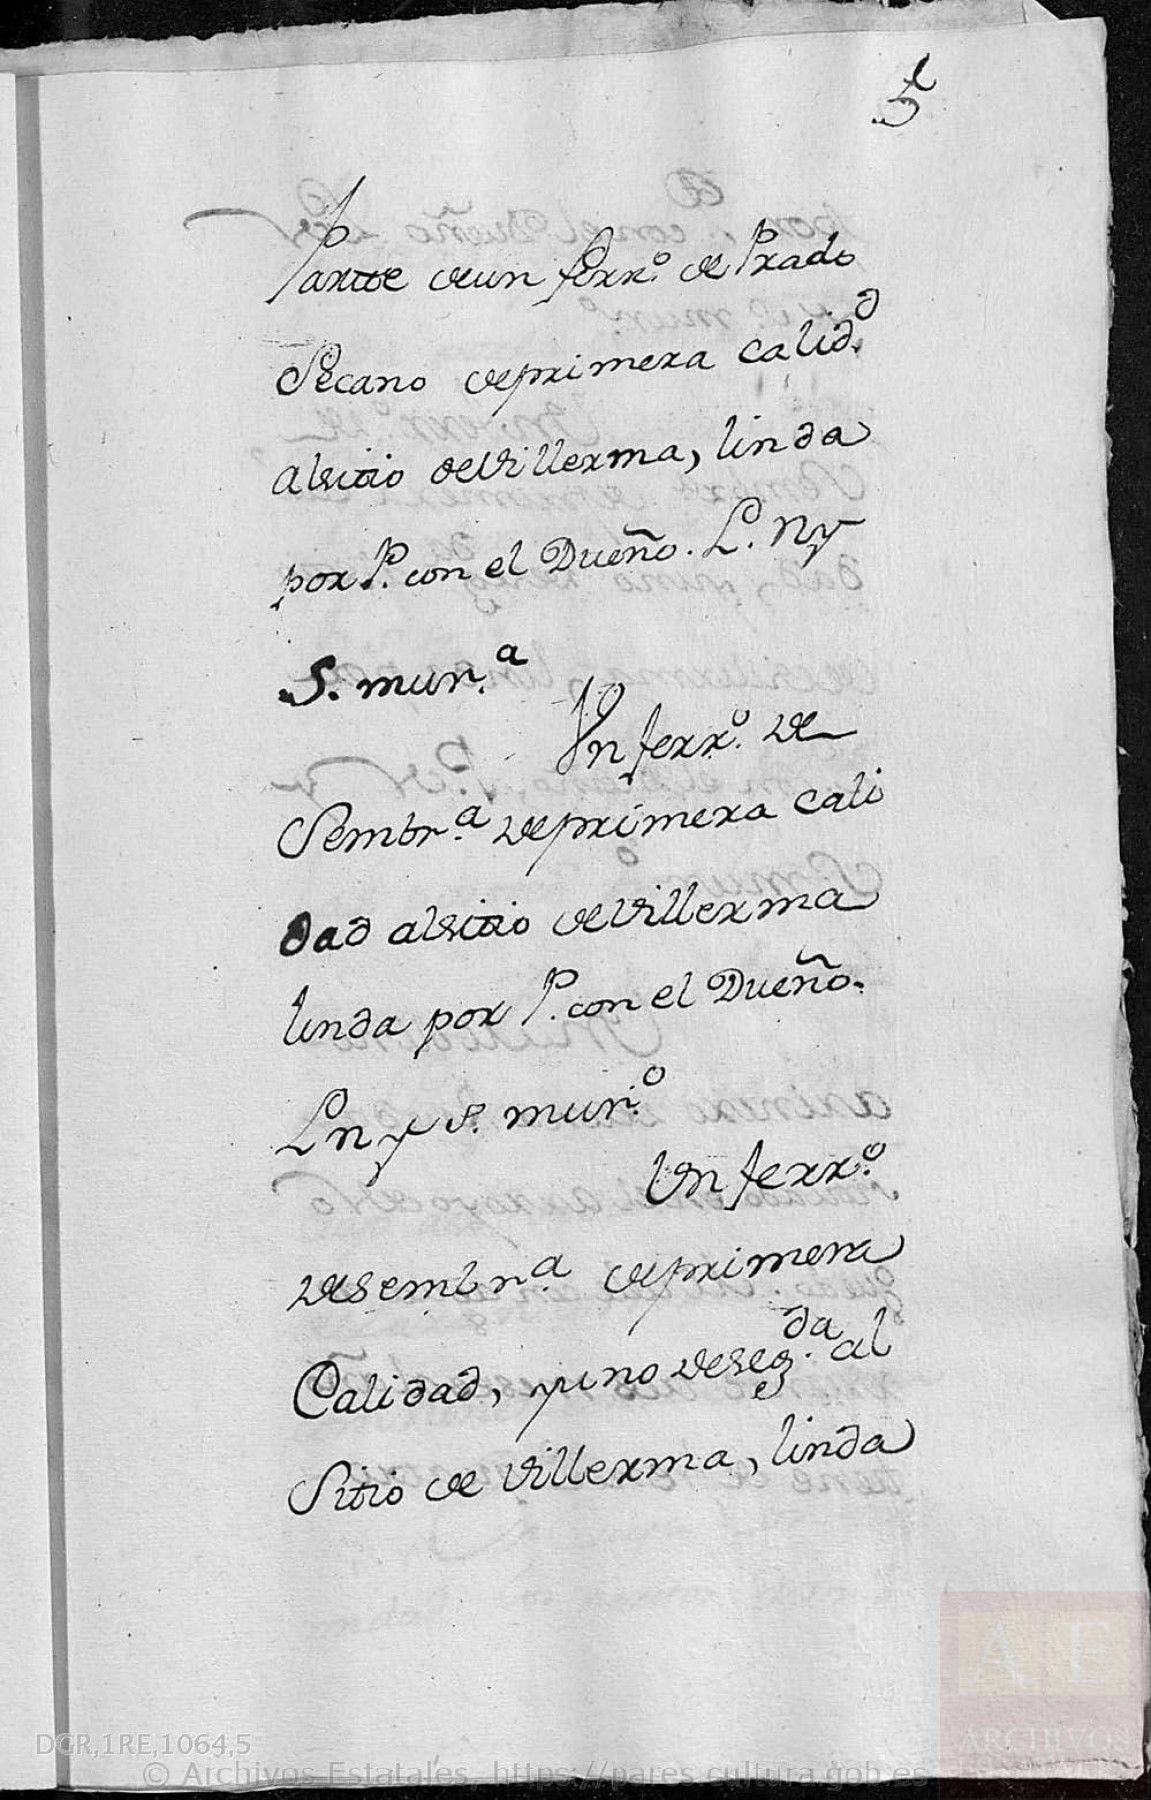 5
Partte deun ferr.º de Prado
Secano deprimera calid.ᵈ
alsitio deVillerma, linda
por P. con el Dueño. L. N y
S. mur.ª
Un ferr.º de
Sembr.ª deprimera cali
dad alsitio deVillerma
linda por P. con el Dueño.
L n y S. mur.º
Un ferr.º
desembr.ª deprimera
Calidad, yuno deseg.ᵈᵃ al
Sitio de Villerma, linda
DGR,1RE,1064,5
© Archivos Estatales, https://pares.cultura.gob.es
AE
ARCHIVOS